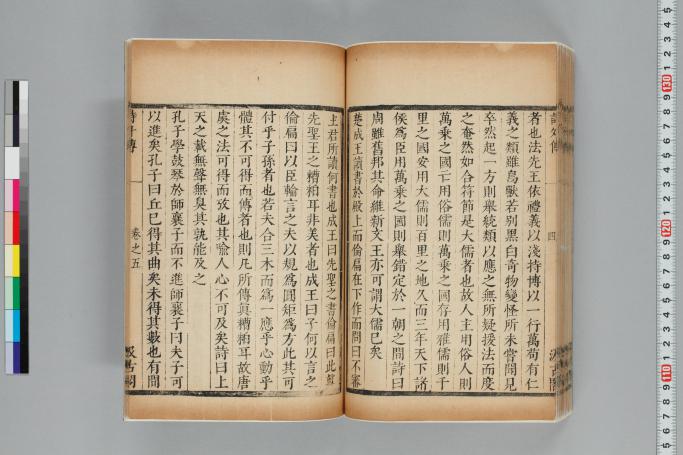 詩外傳 四 汲古閣
者也法先王依禮義以淺持博以一行萬苟有仁
義之類雖鳥獸若別黑白奇物變怪所未嘗聞見
卒然起一方則舉統類以應之無所疑援法而度
之奄然如合符節是大儒者也故人主用俗人則
萬乘之國亡用俗儒則萬乘之國存用雅儒則千
里之國安用大儒則百里之地久而三年天下諸
侯爲臣用萬乘之國則舉錯定於一朝之間詩曰
周雖舊邦其命維新文王亦可謂大儒已矣
楚成王讀書於殿上而倫扁在下作而問曰不審
主君所讀何書也成王曰先聖之書倫扁曰此眞
先聖王之糟粕耳非美者也成王曰子何以言之
倫扁曰以臣輪言之夫以規爲圓矩爲方此其可
付乎子孫者也若夫合三木而爲一應乎心動乎
體其不可得而傳者也則凡所傳眞糟粕耳故唐
虞之法可得而攷也其喻人心不可及矣詩曰上
天之載無聲無臭其孰能及之
孔子學鼓琴於師襄子而不進師襄子曰夫子可
以進矣孔子曰丘已得其曲矣未得其數也有間
詩外傳 卷之五 汲古閣